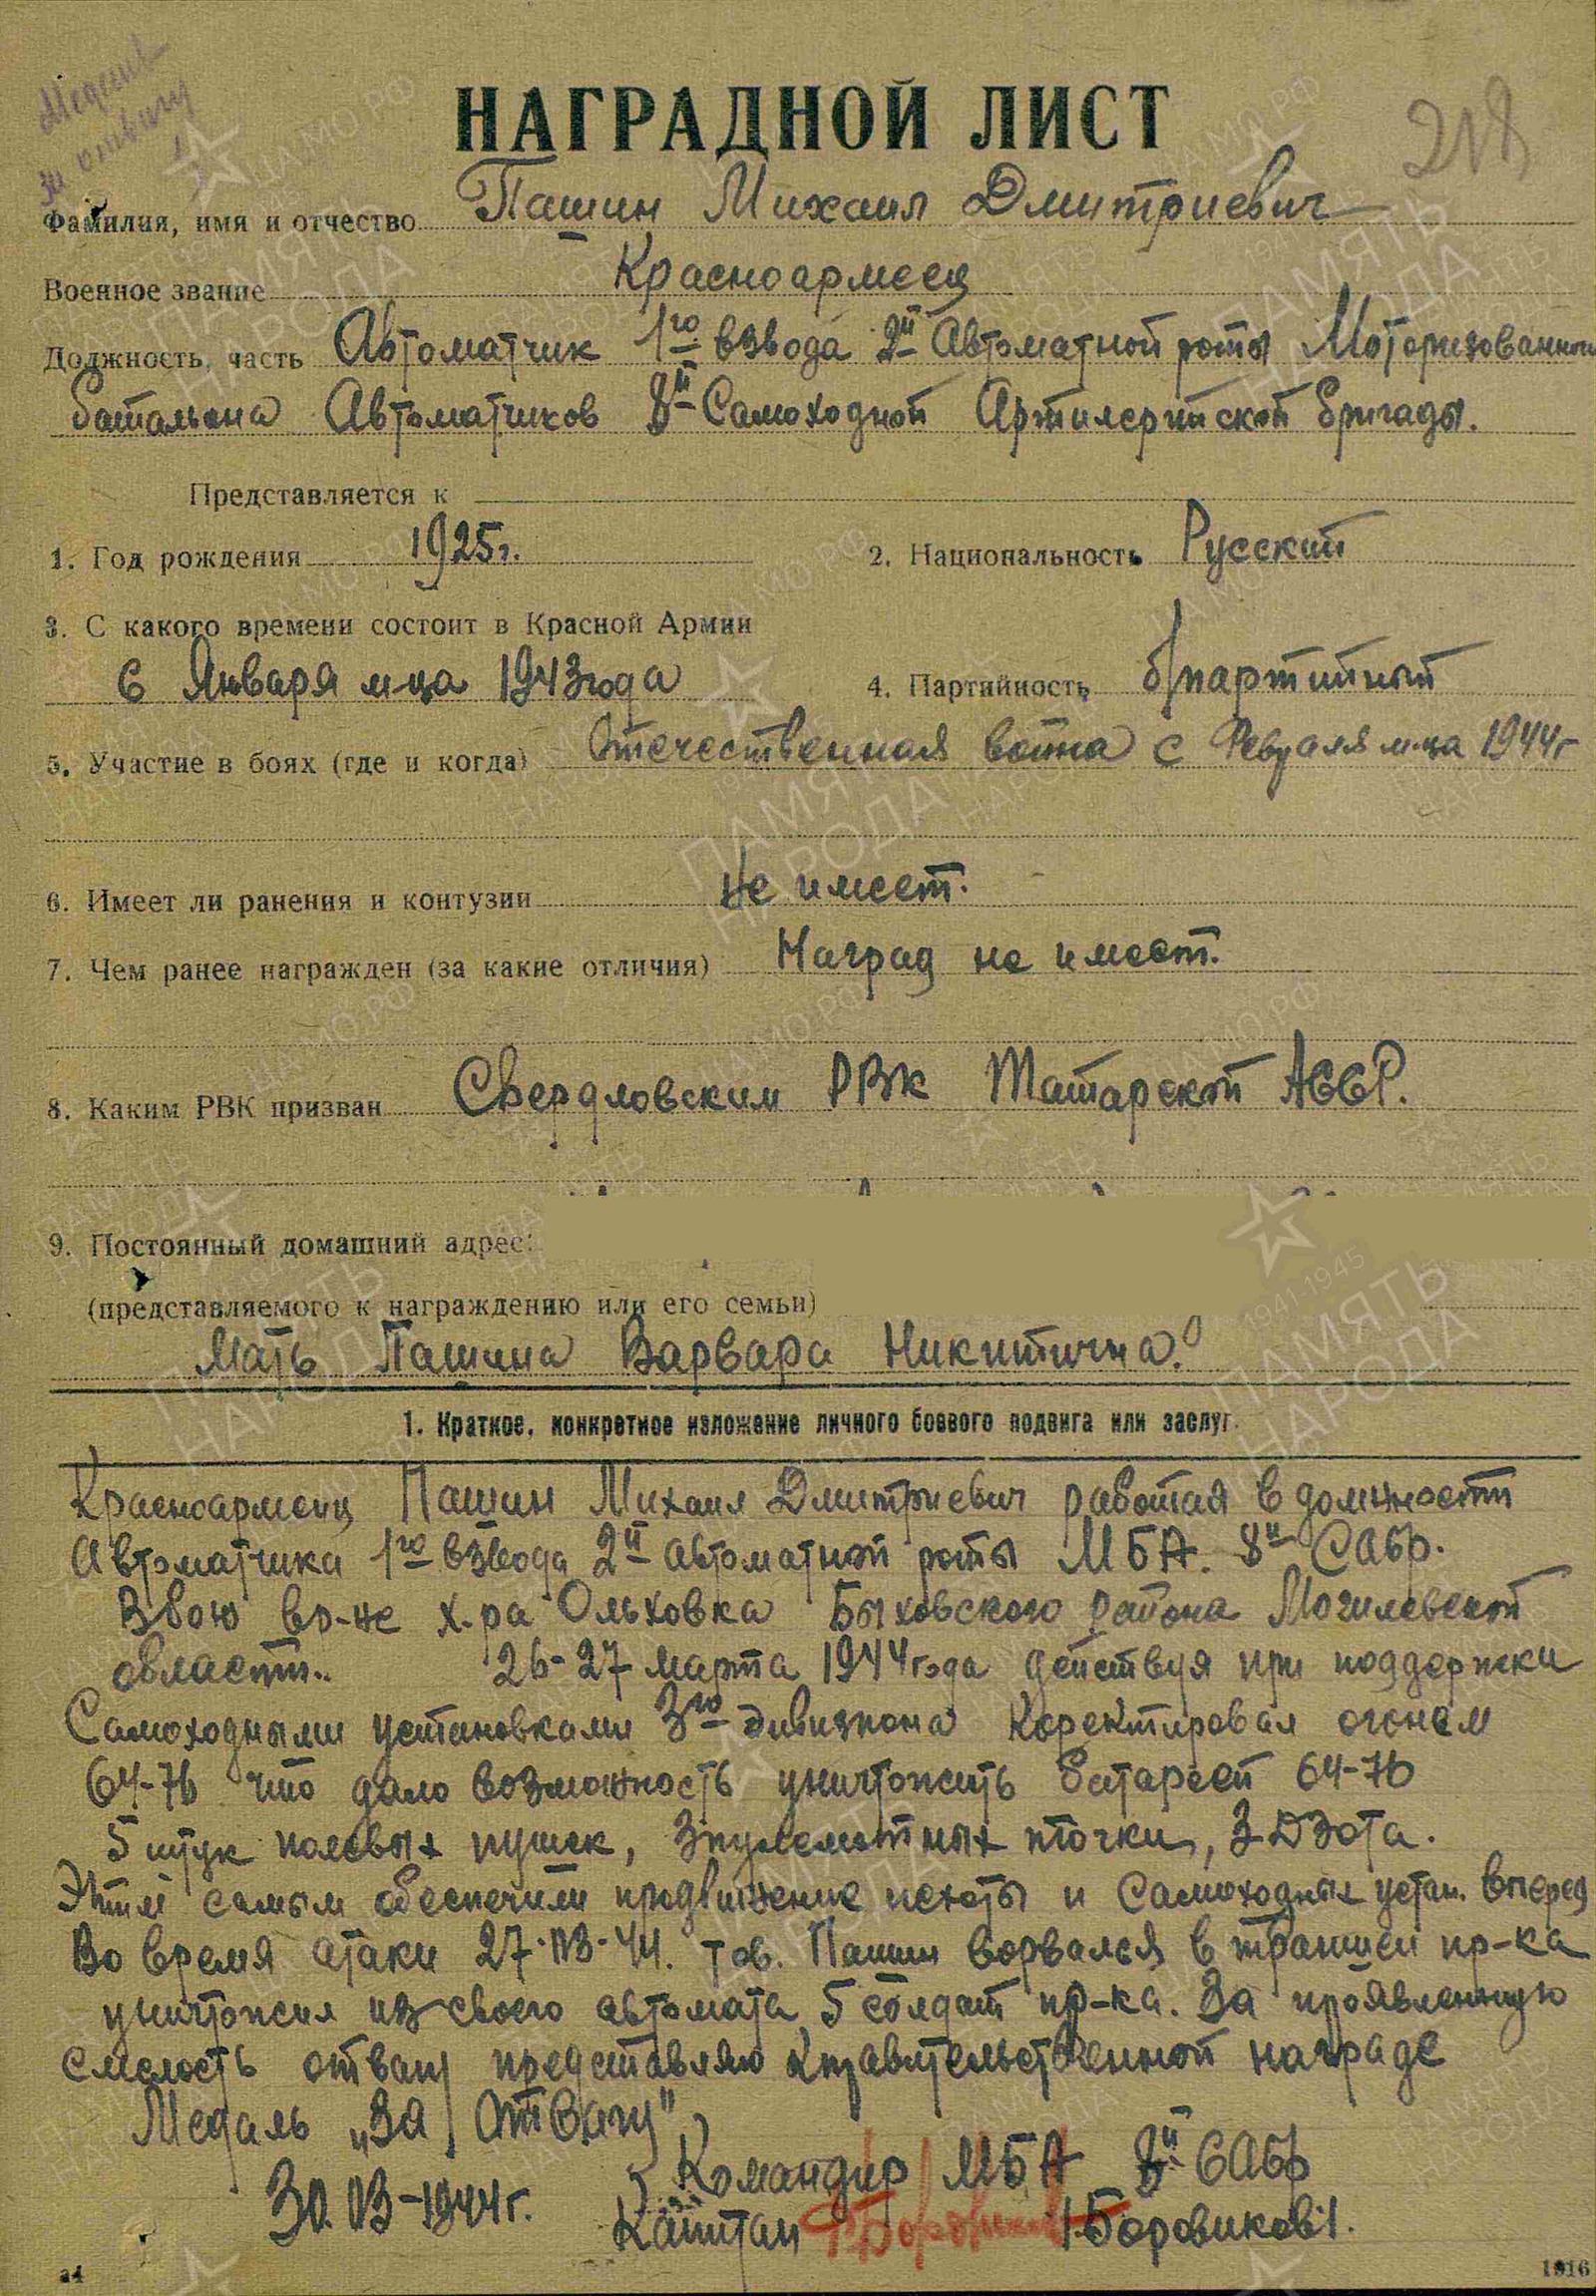 Медаль
за отвагу
218
НАГРАДНОЙ ЛИСТ
Фамилия, имя и отчество Пашин Михаил Дмитриевич
Военное звание Красноармеец
Должность, часть Автоматчик 1го взвода 2й Автоматной роты Моторизованного
батальона Автоматчиков 8й Самоходной Артилерийской бригады.
Представляется к
1. Год рождения 1925г.
2. Национальность Русский
3. С какого времени состоит в Красной Армии
С Января м-ца 1943 года
4. Партийность б/партийный
5. Участие в боях (где и когда) Отечественная война с Февраля м-ца 1944г
6. Имеет ли ранения и контузии Не имеет.
7. Чем ранее награжден (за какие отличия) Наград не имеет.
8. Каким РВК призван Свердловским РВК Татарской АССР.
9. Постоянный домашний адрес:
(представляемого к награждению или его семьи)
Мать Пашина Варвара Никитична.
1. Краткое, конкретное изложение личного боевого подвига или заслуг.
Красноармеец Пашин Михаил Дмитриевич работая в должности
Автоматчика 1го взвода 2й автоматной роты МБА. 8й САбр.
В бою в р-не х-ра Ольховка Быховского района Могилевской
области.. 26-27 марта 1944 года действуя при поддержки
Самоходными установками 3го дивизиона Коректировал огонем
СУ-76 что дало возможность уничтожить батареей СУ-76
5 штук полевых пушек, 3 пулеметных точки, 3 ДЗота.
Этим самым обеспечили продвижение пехоты и Самоходных устан. вперед
Во время атаки 27.03.44. тов. Пашин ворвался в траншеи пр-ка
уничтожил из своего автомата 5 солдат пр-ка. За проявленную
смелость отвагу представляю к правительственной награде
Медаль „За Отвагу"
Командир МБА 8й САбр
30.03-1944г.
Капитан /Боровиков/.
а4
1916
ПАМЯТЬ НАРОДА
1941-1945
ЦА МО РФ